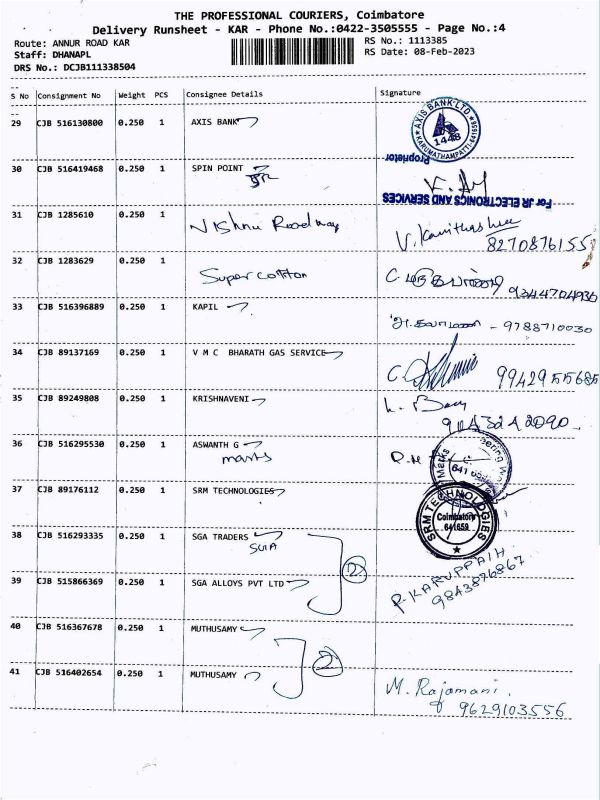 THE PROFESSIONAL COURIERS, Coimbatore
Delivery Runsheet - KAR - Phone No.:0422-3505555 - Page No.:4
Route: ANNUR ROAD KAR
RS No.: 1113385
Staff: DHANAPL
RS Date: 08-Feb-2023
DRS No.: DCJB111338504
S No Consignment No Weight PCS Consignee Details Signature
29 CJB 516130800 0.250 1 AXIS BANK
AXIS BANK LTD
1448
KARUMATHAMPATTI-641659
Proprietor
30 CJB 516419468 0.250 1 SPIN POINT
For JR ELECTRONICS AND SERVICES
31 CJB 1285610 0.250 1 Vishnu Roadway V. Kavithashree
8270876155
32 CJB 1283629 0.250 1 Super cotton 9344704936
33 CJB 516396889 0.250 1 KAPIL - 9788710030
34 CJB 89137169 0.250 1 V M C BHARATH GAS SERVICE 9942955685
35 CJB 89249808 0.250 1 KRISHNAVENI
9043242090
36 CJB 516295530 0.250 1 ASWANTH G
marks
37 CJB 89176112 0.250 1 SRM TECHNOLOGIES
SRM TECHNOLOGIES
Coimbatore
641659
38 CJB 516293335 0.250 1 SGA TRADERS
39 CJB 515866369 0.250 1 SGA ALLOYS PVT LTD 2
P. KARUPPAIH
9843876867
40 CJB 516367678 0.250 1 MUTHUSAMY
2
41 CJB 516402654 0.250 1 MUTHUSAMY M. Rajamani.
9629103556